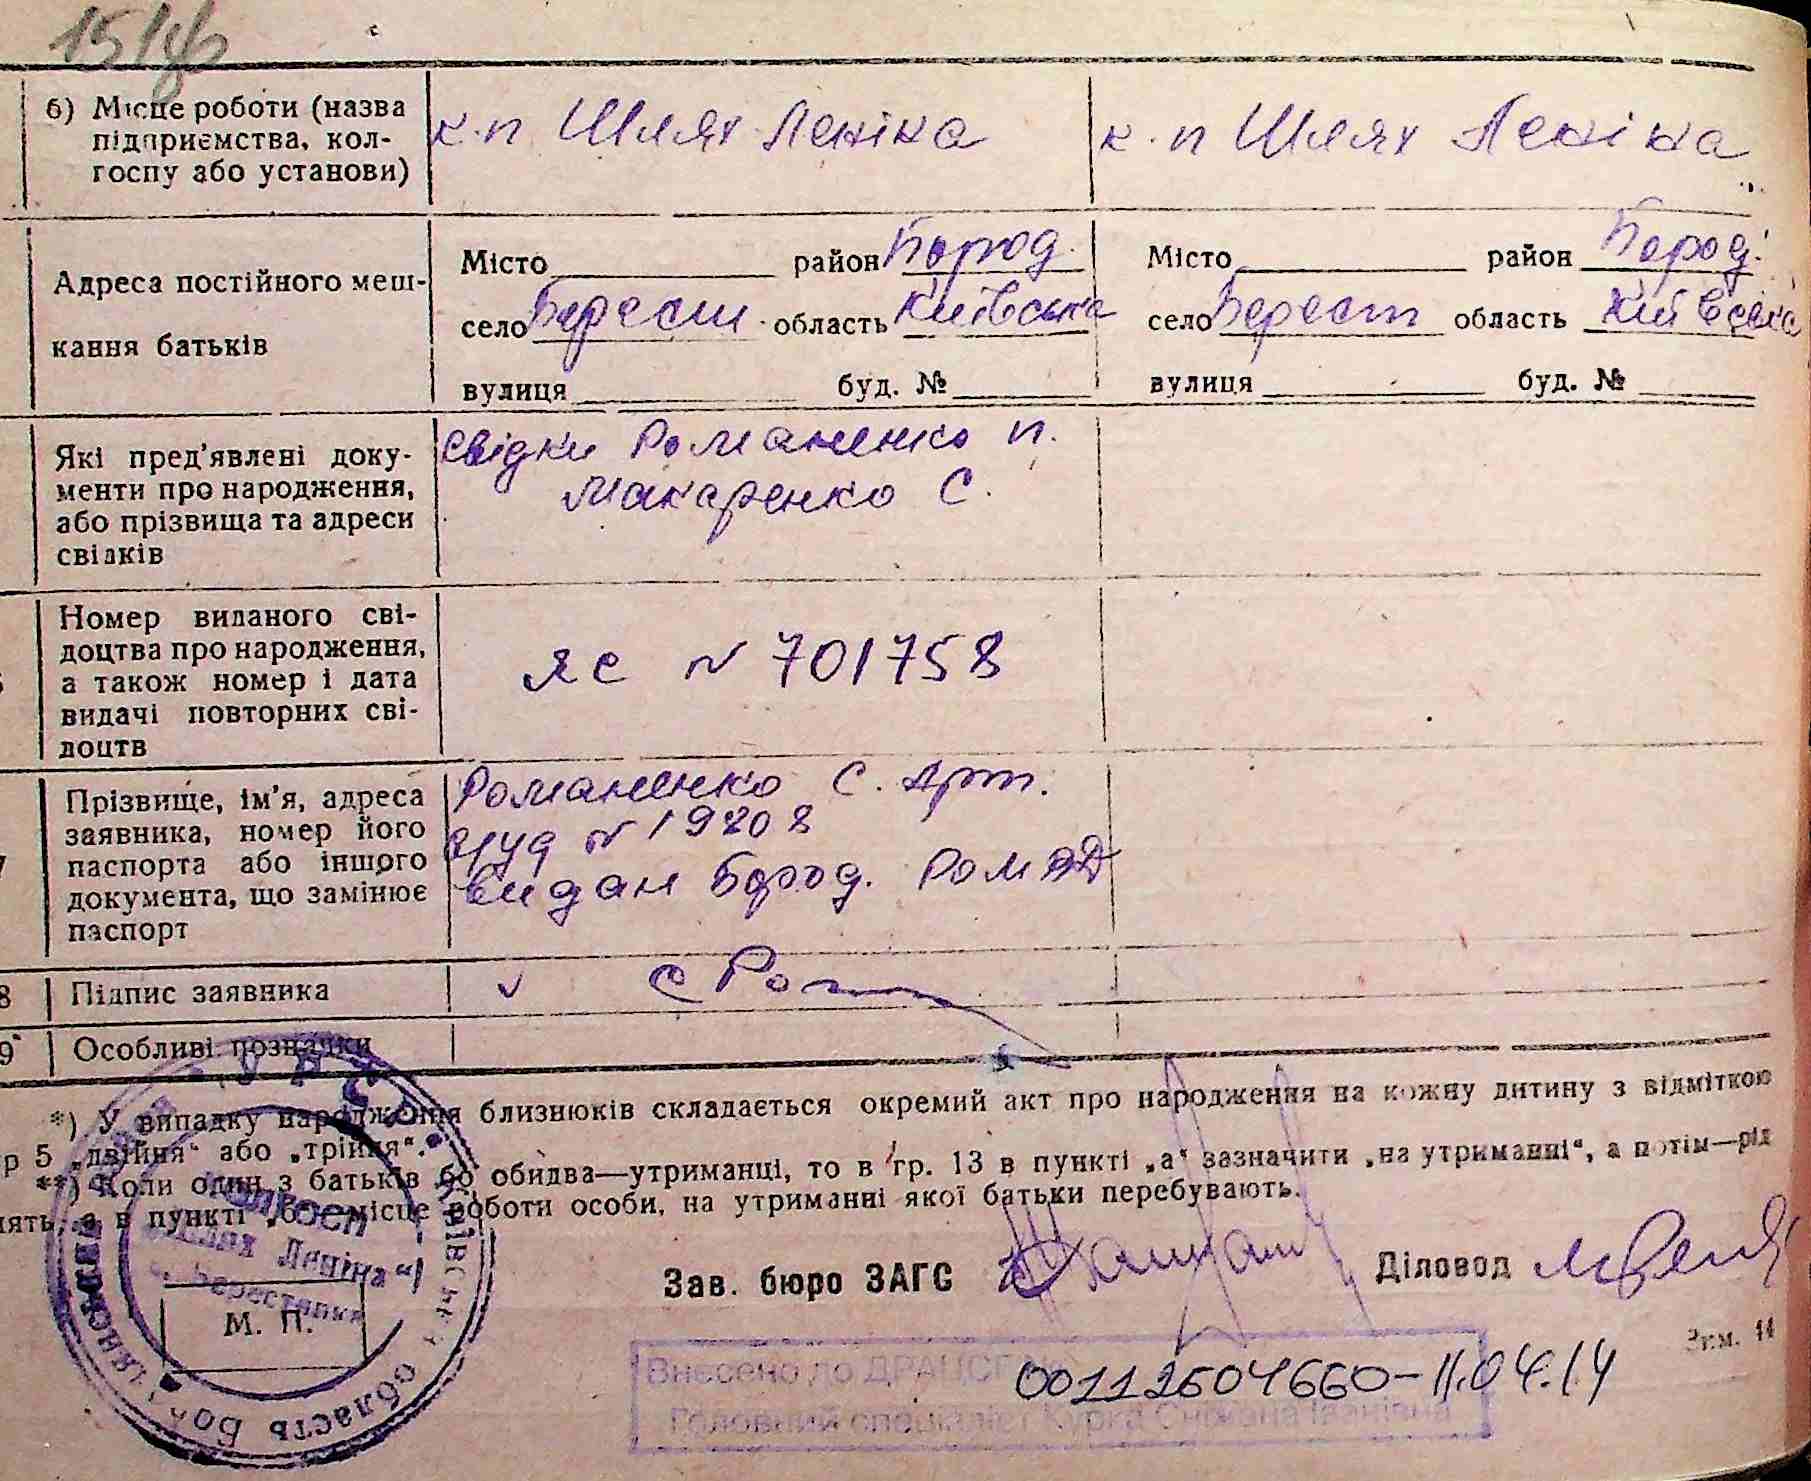 6) Місце роботи (назва
підприємства, кол-
госпу або установи)
к.п Шлях Леніна
к.п Шлях Леніна
Адреса постійного меш-
кання батьків
Місто район Бород.
село Берест область Київська
вулиця буд. №
Місто район Бород.
село Берест область Київська
вулиця буд. №
Які пред'явлені доку-
менти про народження,
або прізвища та адреси
свідків
Свідки Романенко п.
Макаренко С.
Номер виданого сві-
доцтва про народження,
а також номер і дата
видачі повторних сві-
доцтв
яс № 701758
7
Прізвище, ім'я, адреса
заявника, номер його
паспорта або іншого
документа, що замінює
паспорт
Романенко С. Арт.
№ 19808
видан Бород.
8 Підпис заявника
9 Особливі позначки
*) У випадку народження близнюків складається окремий акт про народження на кожну дитину з відміткою
гр 5 „двійня“ або „трійня“.
**) Коли один з батьків бо обидва—утриманці, то в гр. 13 в пункті „а“ зазначити „на утриманні“, а потім—рід
нять, а в пункті „б“—місце роботи особи, на утриманні якої батьки перебувають.
Колгосп
„Шлях Леніна“
с. Берестянка
Київська область
М. П.
Зав. бюро ЗАГС
Діловод
Зкм. 14
Внесено до ДРАЦСГ
00112604660-11.04.14
Головний спеціаліст Курка Сніжана Іванівна